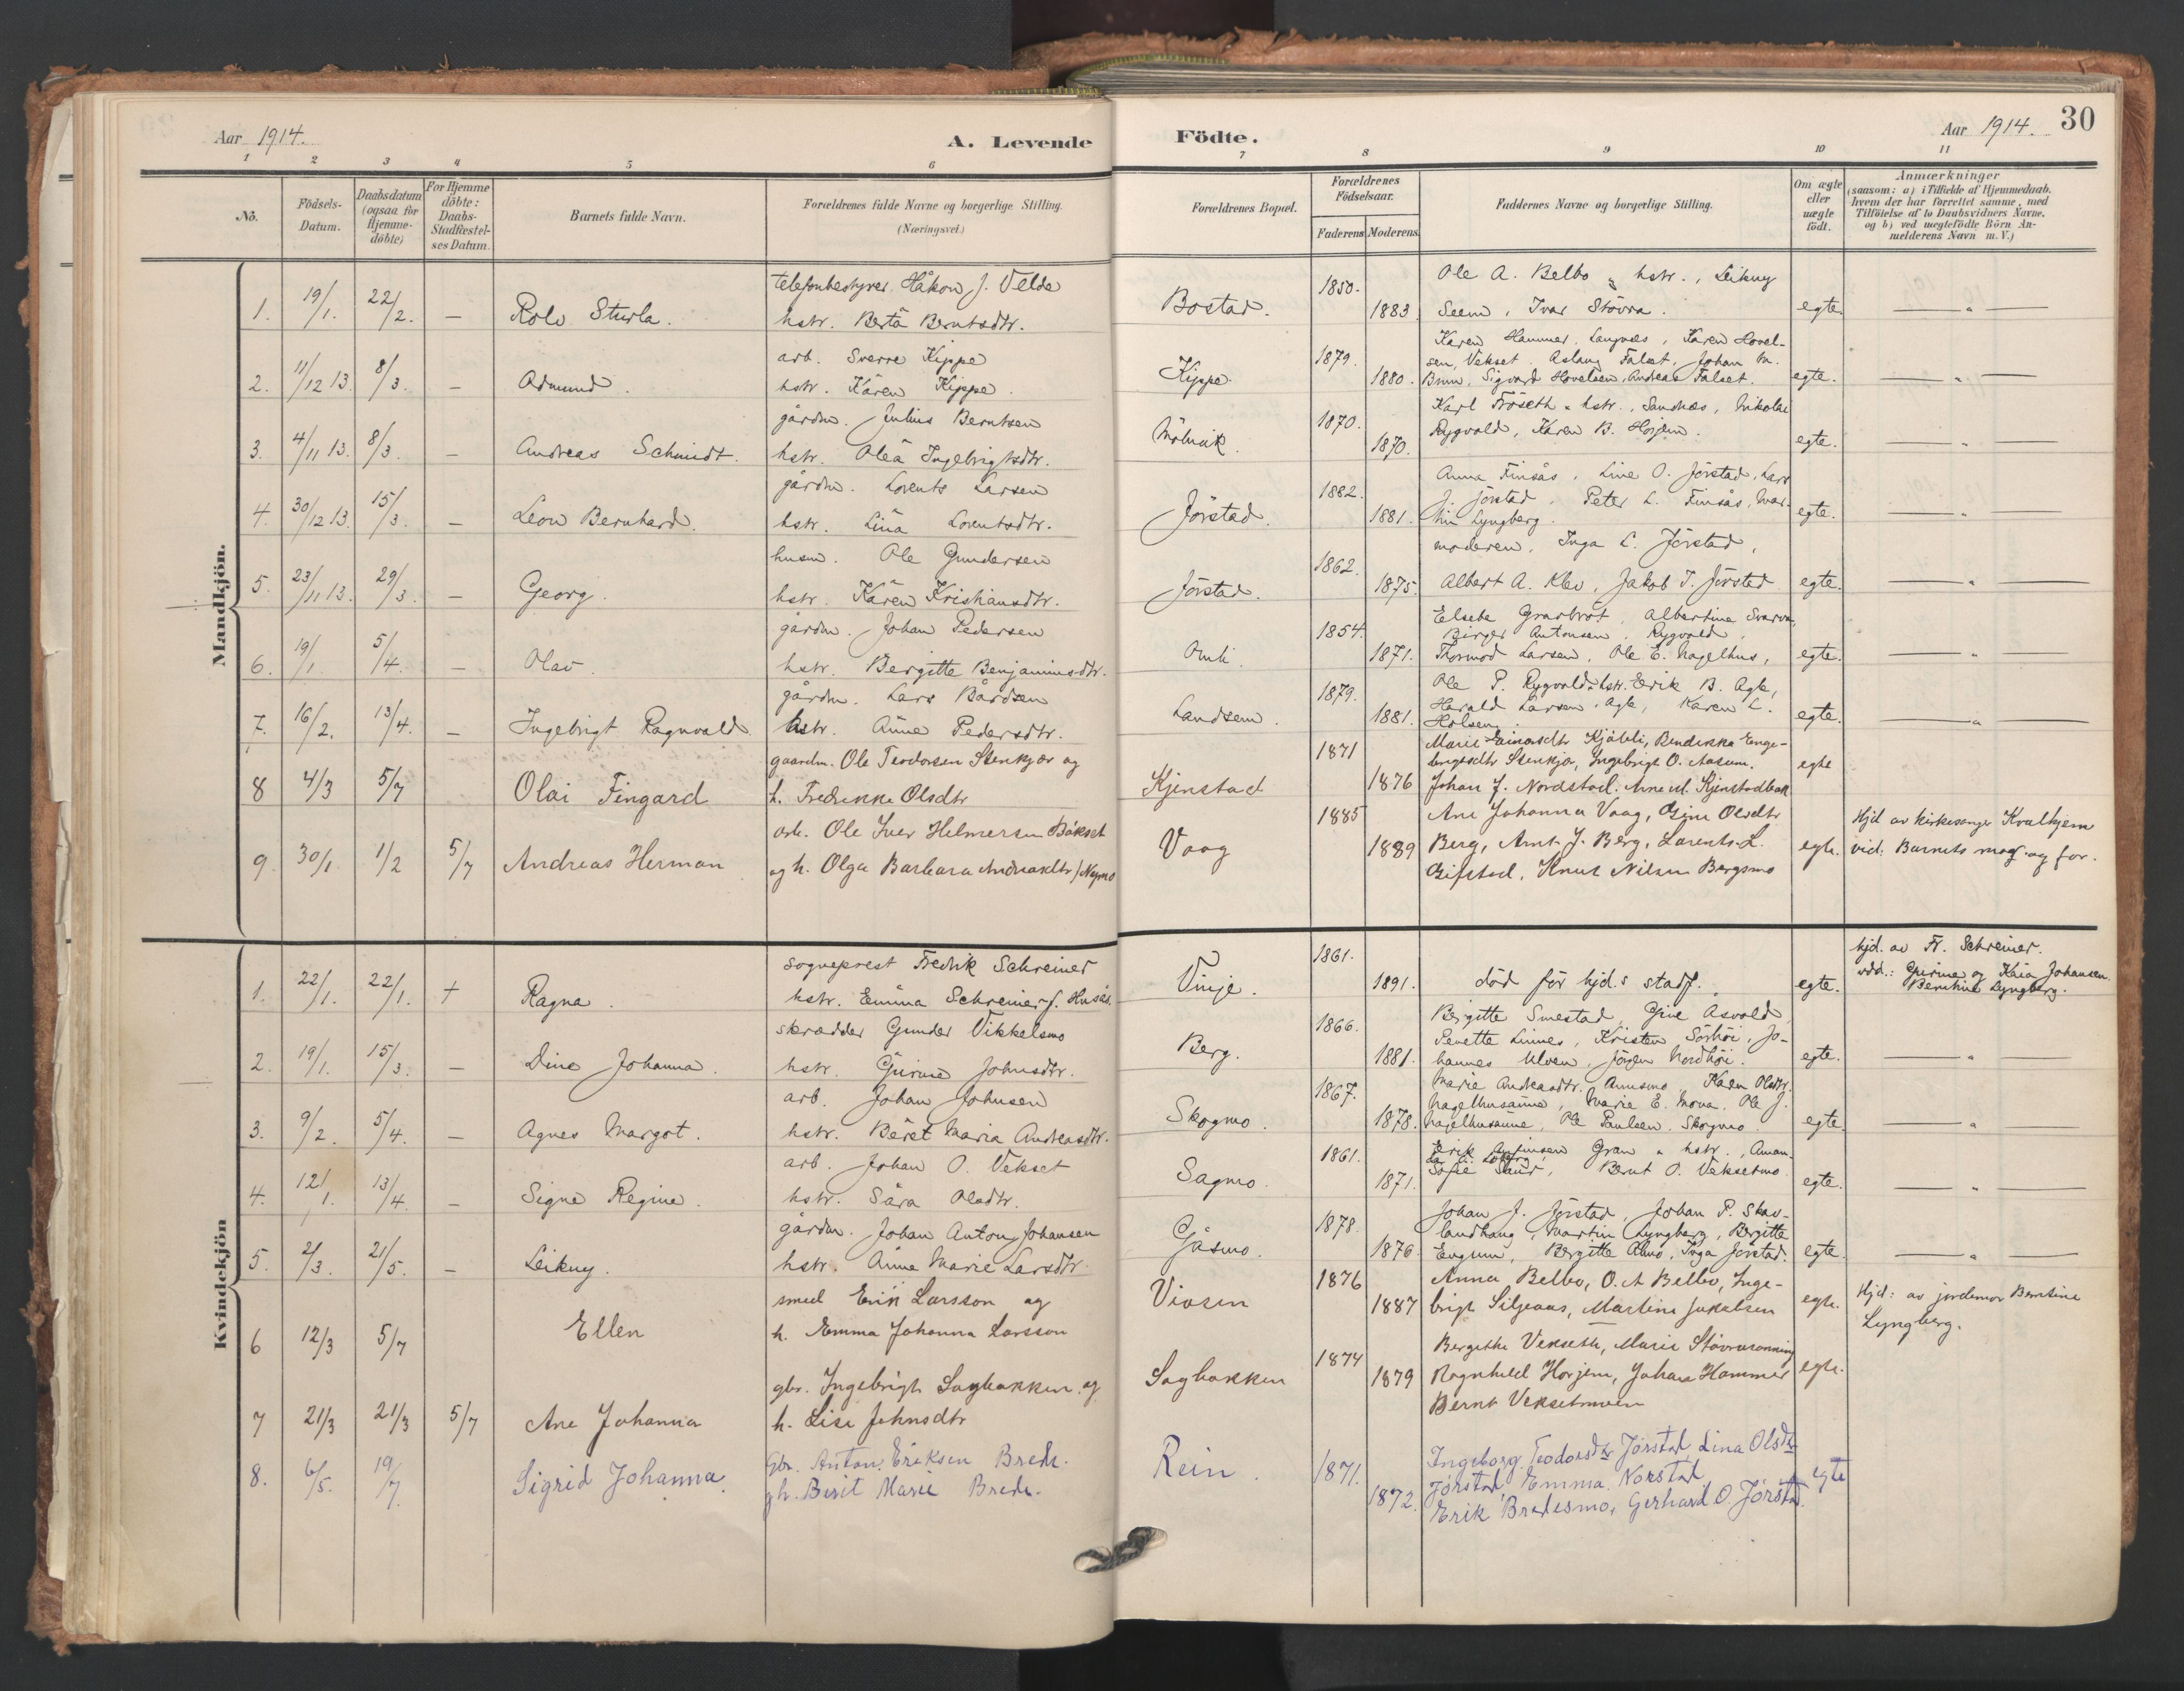 Aar 1914.
A. Levende
Födte.
Aar 1914. 30
1 2 3 4 5 6 7 8 9 10 11
Nō.
Födsels-
Datum.
Daabsdatum
(ogsaa for
Hjemme-
döbte)
For Hjemme
döbte:
Daabs-
Stadfæstel-
ses Datum.
Barnets fulde Navn.
Forældrenes fulde Navne og borgerlige Stilling.
(Næringsvei.)
Forældrenes Bopæl.
Forældrenes
Födselsaar.
Faderens Moderens
Faddernes Navne og borgerlige Stilling.
Om ægte
eller
uægte
födt.
Anmærkninger
(saasom: a) i Tilfælde af Hjemmedaab.
hvem der har forrettet samme, med
Tilföielse af to Daabsvidners Navne,
og b) ved uægtefödte Börn An-
melderens Navn m. V.)
Mandkjön.
1. 19/1. 22/2. — Rolv Sturla.
telefonbestyrer Håkon J. Velde
hstr. Berta Berntsdtr.
Bostad. 1850. 1883.
Ole A. Belbo & hstr., Leikny
Seem, Ivar Stövra.
egte. — " —
2. 11/12 13. 8/3. — Admund.
arb. Sverre Kippe
hstr. Karen Kippe.
Kippe. 1879. 1880.
Karen Hammer, Langnes, Karen Hovel-
sen, Vekset. Aslaug Falset, Johan M.
Brun, Sigvard Hovelsen, Andreas Falset.
egte. — " —
3. 4/11 13. 8/3. — Andreas Schmidt.
gårdm. Julius Berntsen
hstr. Olea Ingebrigtsdtr.
Mölnvik. 1870. 1870.
Karl Fröseth & hstr., Sandnes, Nikolai
Rygvold, Karen B. Horjem.
egte. — " —
4. 30/12 13. 15/3. — Leon Bernhard.
gårdm. Lorents Larsen
hstr. Lina Lorentsdtr.
Jörstad. 1882. 1881.
Anna Finsås, Line O. Jörstad, Lars
J. Jörstad, Peter L. Finsås, Mar-
tin Lyngberg.
egte. — " —
5. 23/11 13. 29/3. — Georg.
husm. Ole Gundersen
hstr. Karen Kristiansdtr.
Jörstad. 1862. 1875.
moderen, Inga L. Jörstad,
Albert A. Klev, Jakob T. Jörstad
egte. — " —
6. 19/1. 5/4. — Olav.
gårdm. Johan Pedersen
hstr. Bergitte Benjaminsdtr.
Omli. 1854. 1871.
Elsebe Grarbrot, Albertine Svarva,
Birger Antonsen, Rygvold,
Thormod Larsen, Ole E. Nagelhus,
egte. — " —
7. 16/2. 13/4. — Ingebrigt Ragnvald
gårdm. Lars Bårdsen
hstr. Anne Pedersdtr.
Landsem. 1879. 1881.
Ole P. Rygvold & hstr. Erik B. Agle,
Harald Larsen Agle, Karen L.
Holseng.
egte. — " —
8 4/3 5/7 Olai Fingard
gaardm. Ole Teodorsen Stenkjær og
h. Fredrikke Olsdtr
Kjenstad 1871 1876
Marie Einarsdtr Kjölli, Bendikka Enge-
brigtsdtr Stenkjær, Ingebrigt O. Aasum.
Johan J. Nordstad. Arne Kjenstadbak
egte
9. 30/1. 1/2 5/7 Andreas Herman
arb. Ole Iver Helmersen Bökset
og h. Olga Barbara Andreasdtr / Nymo
Vaag 1885 1889
Ane Johanna Vaag, Gine Olsdtr
Berg, Arnt J. Berg, Lorents L.
Gifstad, Knut Nilsen Bergsmo
egte.
Hjd av kirkesanger Kvalhjem
vid: Barnets mor og far.
Kvindekjön
1. 22/1. 22/1. + Ragna.
sogneprest Fredrik Schreiner
hstr. Emma Schreiner f. Husås.
Vinje. 1861. 1891.
död för hjd.s stadf.
egte.
hjd. av Fr. Schreiner.
vdd.: Gurine og Kaia Johansen
Berntine Lyngberg.
2. 19/1. 15/3. — Dine Johanna.
skrædder Gunder Vikkelsmo
hstr. Gurine Johnsdtr.
Berg. 1866. 1881.
Bergitte Smestad, Gine Asvold
Penette Linnes, Kristen Sörhöi, Jo-
hannes Ulven, Jörgen Nordhöi.
egte. — " —
3. 9/2. 5/4. — Agnes Margot.
arb. Johan Johnsen
hstr. Beret Maria Andreasdtr.
Skogmo. 1867. 1878.
Marie Andreasdtr. Aunsmo, Karen Olsdtr.
Nagelhusaune, Marie E. Mona. Ole J.
Nagelhusaune, Ole Paulsen Skogmo.
egte. — " —
4. 12/1. 13/4. — Signe Regine.
arb. Johan O. Vekset
hstr. Sara Olsdtr.
Sagmo. 1861. 1871.
Erik Gran & hstr., Aman-
Sofie Saur, Bernt O. Veksetmo.
egte. — " —
5. 2/3. 21/5. — Leikny.
gårdm. Johan Anton Johansen
hstr. Anna Marie Larsdtr.
Gåsmo. 1878. 1876.
Johan J. Jörstad, Johan P. Skav-
landhaug, Martin Lyngberg, Bergitte
Engum, Bergitte Almo, Inga Jörstad.
egte. — " —
6 12/3 5/7 Ellen
smed Erik Larsson og
h. Emma Johanna Larsson
Viosen 1876 1887
Anna Belbo, O. A Belbo, Inge-
brigt Siljeaas, Martine Jakobsen
egte.
Hjd: av jordemor Berntine
Lyngberg.
7 21/3 21/3 5/7 Ane Johanna
gbr. Ingebrigt Sagbakken og
h. Lise Johnsdtr
Sagbakken 1874 1879
Bergitte Vekseth, Marie Stövrarönning
Ragnhild Horjem, Johan Hammer
Bernt Veksetmoen
egte.
8. 6/5. 19/7. Sigrid Johanna.
gbr. Anton Eriksen Brede.
gh. Berit Marie Brede.
Rein. 1871. 1872.
Ingeborg Teodorsdtr Jörstad Lina Olsdtr
Jörstad, Emma Norstad
Erik Bredesmo, Gerhard O. Jörstad.
egte